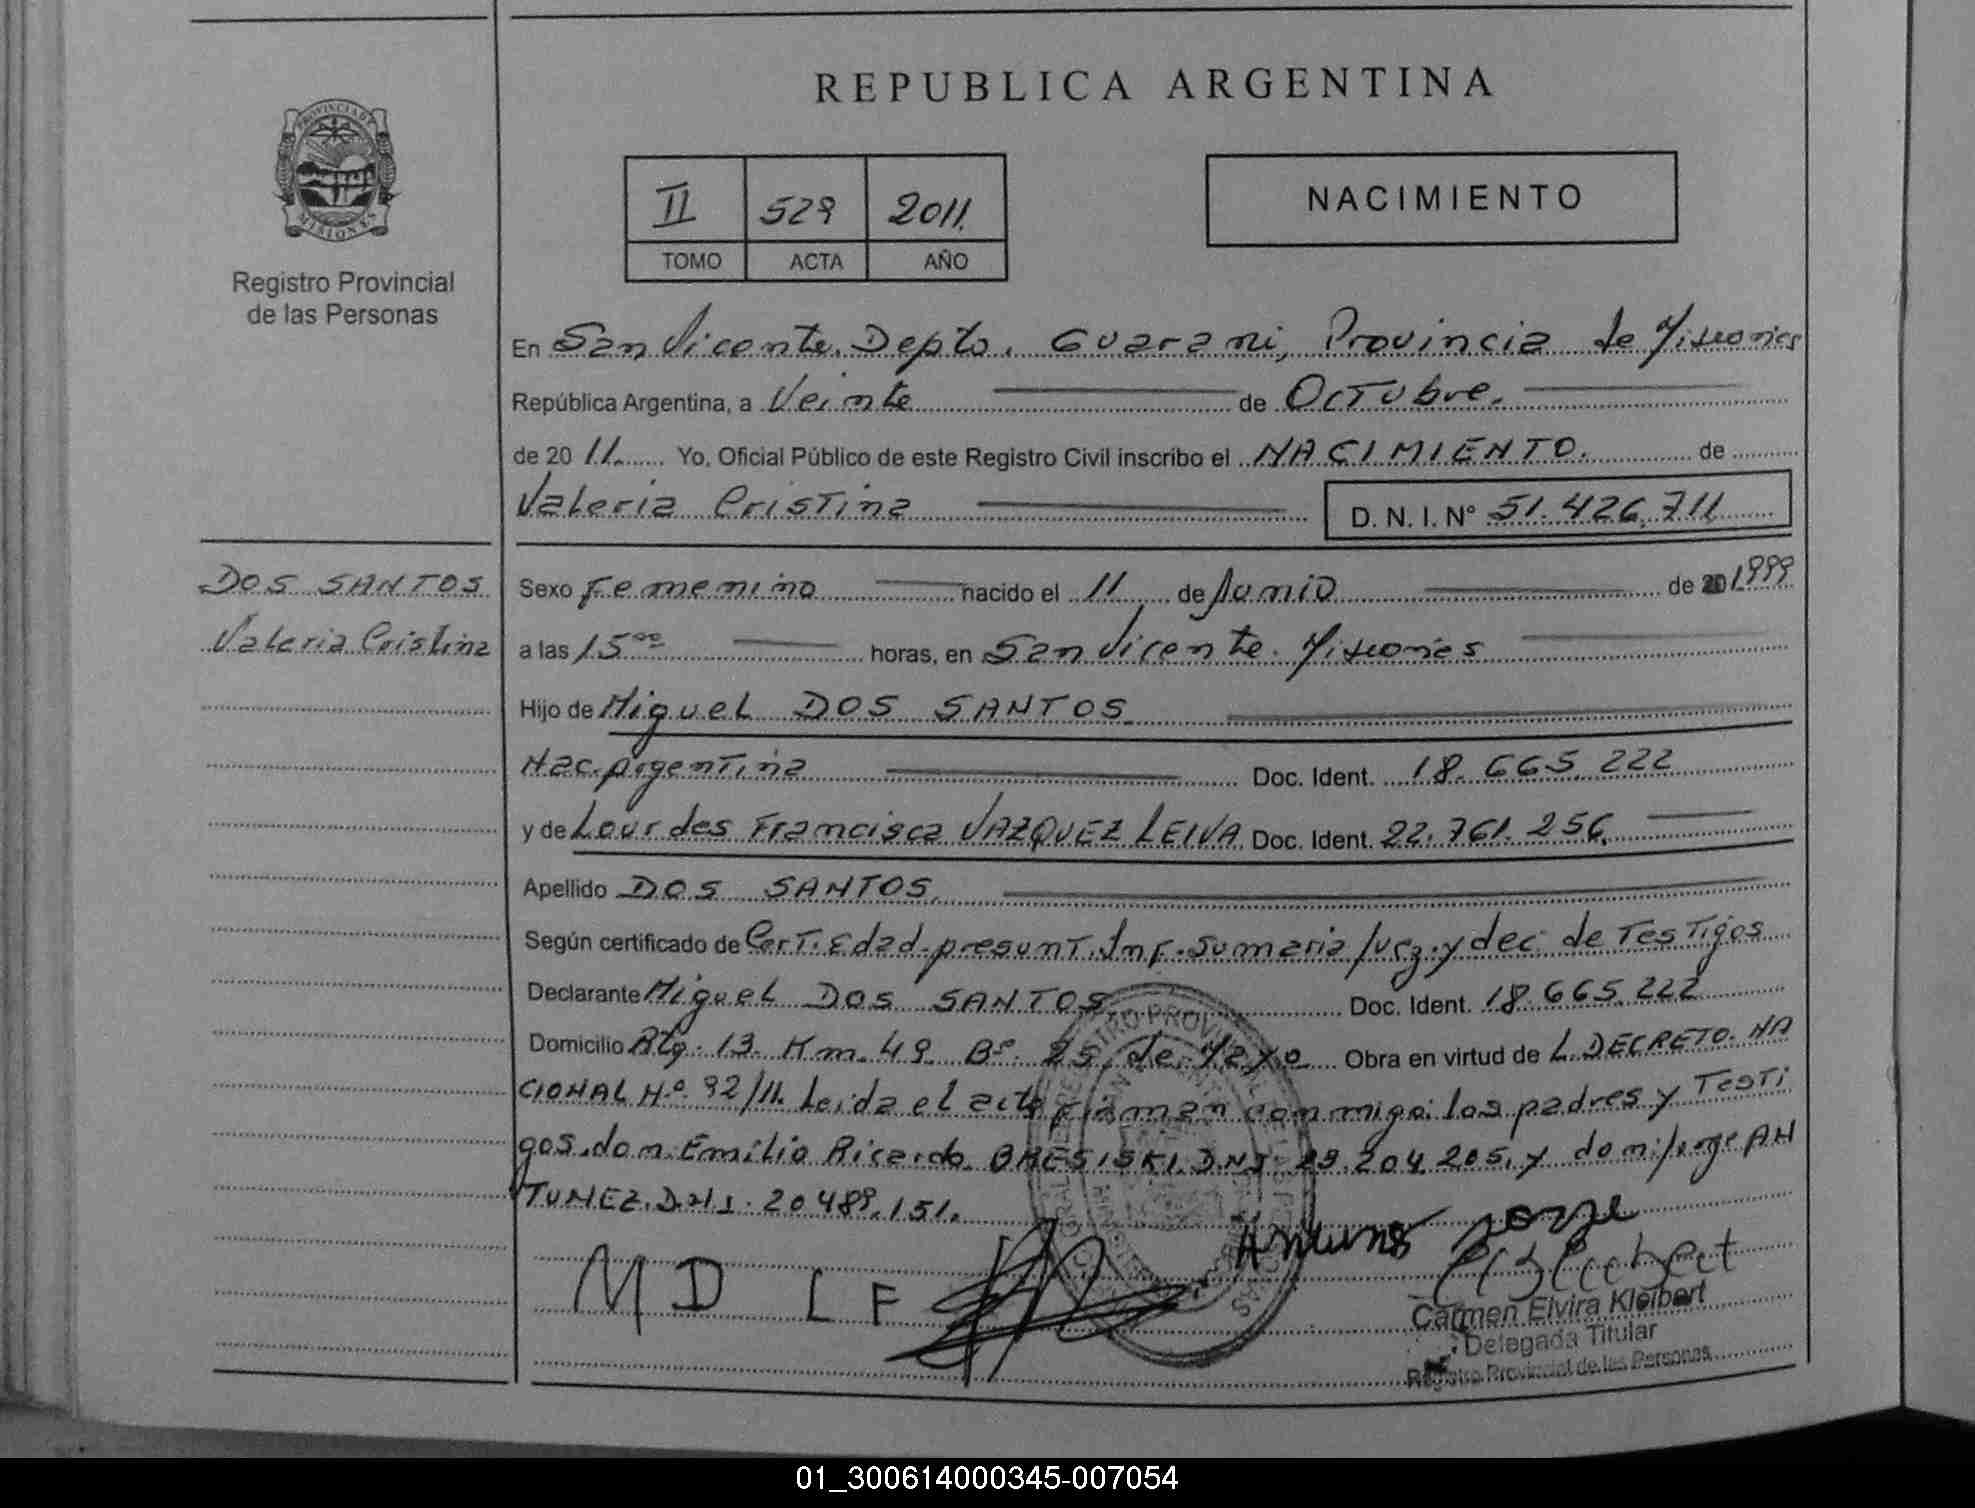 REPUBLICA ARGENTINA
PROVINCIA DE
MISIONES
Registro Provincial
de las Personas
II 529 2011.
TOMO ACTA AÑO
NACIMIENTO
En San Vicente. Depto. Guarani, Provincia de Misiones
República Argentina, a Veinte de Octubre.
de 20 11. Yo, Oficial Público de este Registro Civil inscribo el NACIMIENTO. de
Valeria Cristina D. N. I. N° 51.426.711
DOS SANTOS
Valeria Cristina
Sexo Femenino nacido el 11 de Junio de 1999
a las 15⁰⁰ horas, en San Vicente. Misiones
Hijo de Miguel DOS SANTOS
Nac. Argentina Doc. Ident. 18.665.222
y de Lourdes Francisca VAZQUEZ LEIVA. Doc. Ident. 22.761.256.
Apellido DOS SANTOS.
Según certificado de Cert. Edad. presunt. Inf. Sumaria Juez. y dec. de Testigos
Declarante Miguel DOS SANTOS Doc. Ident. 18.665.222
Domicilio Rta. 13. Km. 49. B°. 25 de Mayo Obra en virtud de L. DECRETO. NA
CIONAL N°. 92/11. Leida el acta firman conmigo: los padres y Testi
gos. don: Emilio Ricardo DNI. 29.204.205. y don: Jorge AN
TUNEZ. D.N.I. 20.489.151.
M D L F
Antunes Jorge
Carmen Elvira Kleibert
Delegada Titular
Registro Provincial de las Personas
01_300614000345-007054